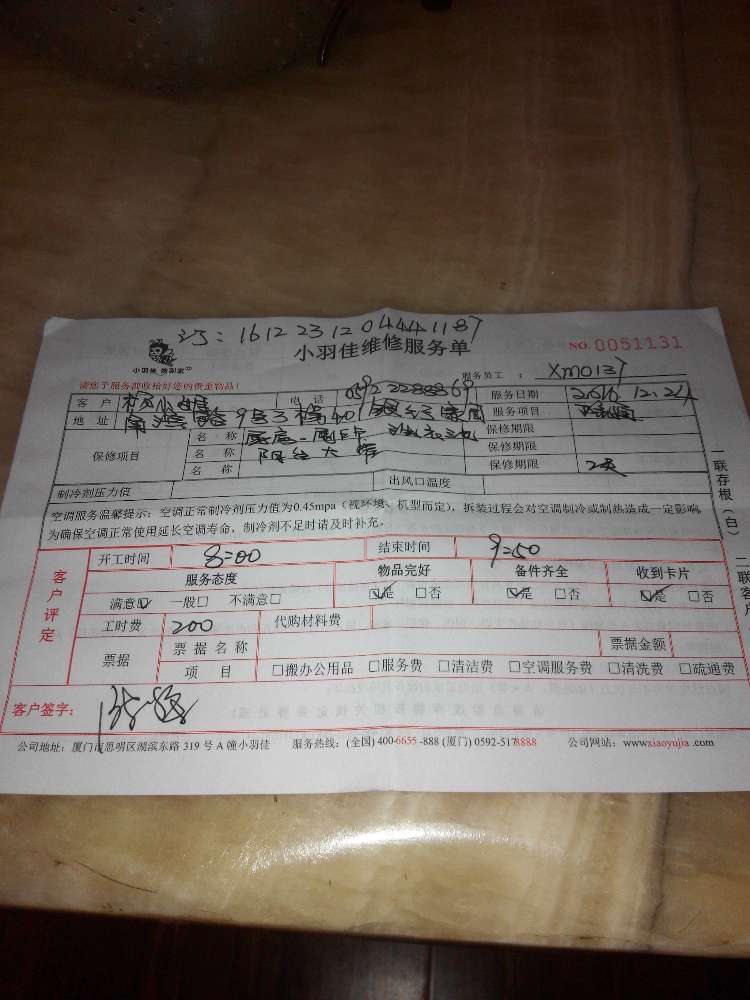 订: 161223120444187
小羽佳维修服务单
NO. 0051131
小羽佳 搬到家
服务员工 : XM0137
请您于服务前收拾好您的贵重物品!
客 户 小姐 电 话 0592 2288869 服务日期 2016.12.24
地 址 9号 401 服务项目
保修项目 名 称 保修期限
名 称 阳台 保修期限
名 称 保修期限 2天
制冷剂压力值 出风口温度
空调服务温馨提示: 空调正常制冷剂压力值为0.45mpa (视环境、机型而定), 拆装过程会对空调制冷或制热造成一定影响,
为确保空调正常使用延长空调寿命, 制冷剂不足时请及时补充。
一联存根(白) 二联客户
客户评定
开工时间 8=00 结束时间 9=50
服务态度 物品完好 备件齐全 收到卡片
满意☑ 一般□ 不满意□ ☑是 □否 ☑是 □否 ☑是 □否
工时费 200 代购材料费
票据 票 据 名 称 票据金额
项 目 □搬办公用品 □服务费 □清洁费 □空调服务费 □清洗费 □疏通费
客户签字:
公司地址: 厦门市思明区湖滨东路 319 号 A 幢小羽佳 服务热线: (全国) 400-6655 -888 (厦门) 0592-5178888 公司网站: www.xiaoyujia .com